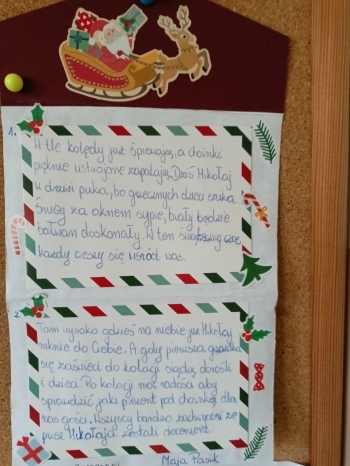 1.
W tle kolędy już śpiewają, a choinki
pięknie ustrojone zapalają. Dziś Mikołaj
w drzwi puka, bo grzecznych dzieci szuka.
Śnieg za oknem sypie, biały będzie
bałwan doskonały. W ten świąteczny czas
każdy cieszy się wśród nas.
2.
Tam wysoko gdzieś na niebie już Mikołaj
mknie do Ciebie. A gdy pierwsza gwiazdka
się zaświeci do kolacji siądą dorośli
i dzieci. Po kolacji moc radości aby
sprawdzić jaki prezent pod choinką dla
nas gości. Wszyscy bardzo zachwyceni że
przez Mikołaja zostali docenieni.
Maja Pasik